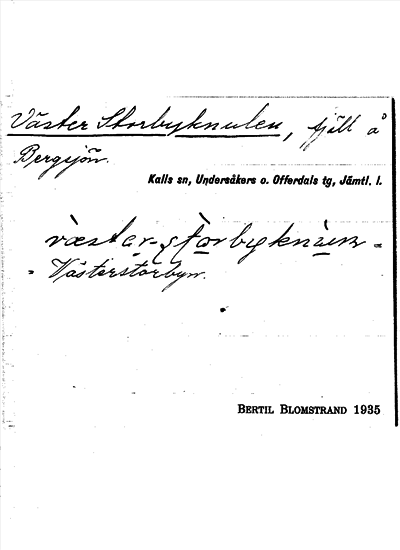 Väster Storbyknulen, fjäll å
Bergsjön.
Kalls sn, Undersåkers o. Offerdals tg, Jämtl. l.
= Västerstorbyn.
BERTIL BLOMSTRAND 1935